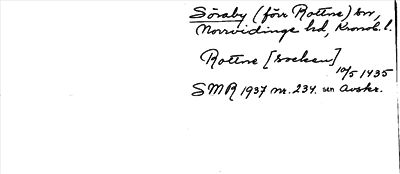 Söraby (förr Rottne) sn,
Norrvidinge hd, Kronob. l.
Rottne [socken]
10/5 1435
SMR 1937 nr. 234. un Avskr.